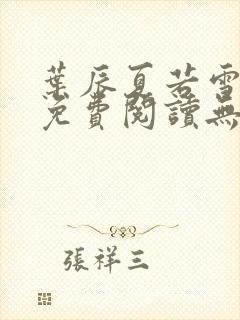 葉辰夏若雪
免費閱讀無
張祥三